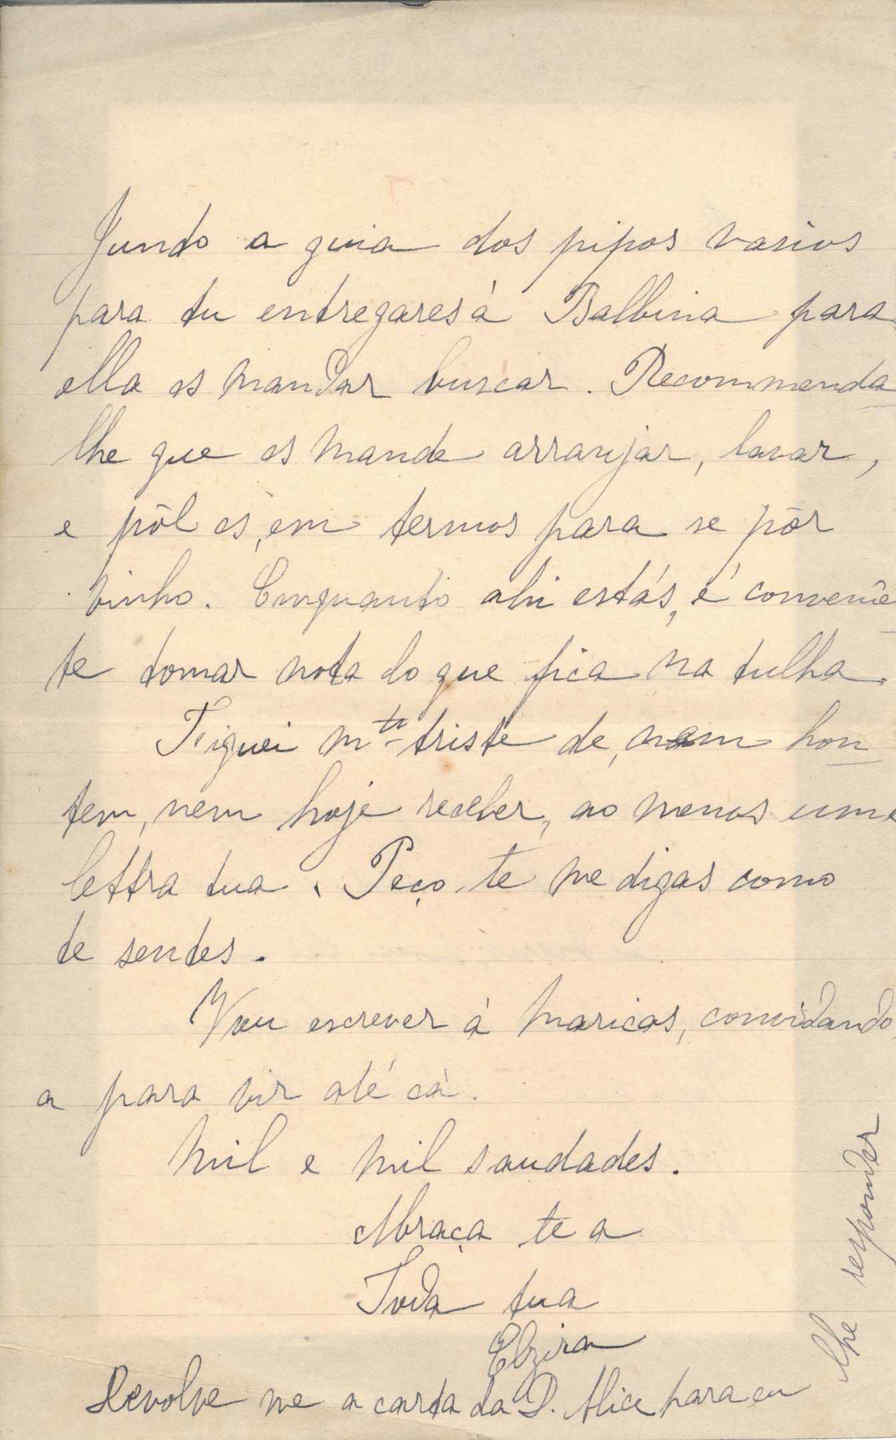 Junto a guia dos pipos vasios
para tu entregares á Balbina para
ella os mandar buscar. Recommenda
lhe que os mande arranjar, lavar,
e pôl os, em termos para se pôr
vinho. Emquanto ahi estás, é conveniê
te tomar nota do que fica na tulha.
Fiquei mto triste de, nem hon
tem, nem hoje receber, ao menos uma
lettra tua. Peço te me digas como
te sentes.
Vou escrever á Maricas, convidando
a para vir até cá.
Mil e mil saudades.
Abraça te a
Toda tua
Elzira
Devolve me a carta da D. Alice para eu
lhe responder